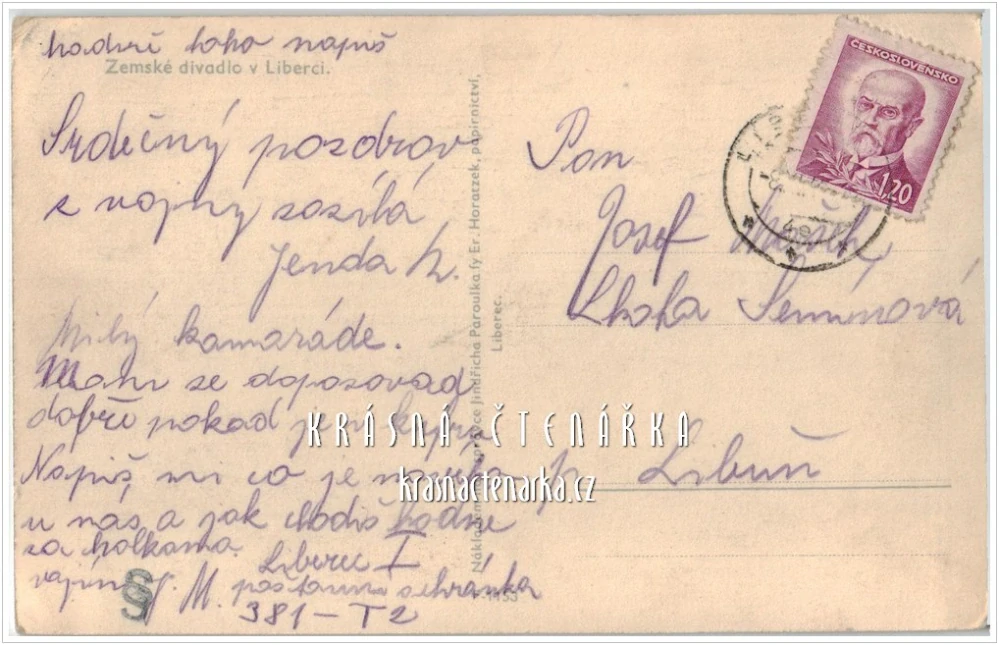 hodně toho napiš
Zemské divadlo v Liberci.
Srdečný pozdrav
z vojny zasílá
Jenda
Milý kamaráde.
Mám se doposovad
dobře pokad je
Napiš mi co je
u nás a jak chodiš hodně
za holkama.
Liberec I
M. poštovní schránka
381-T2
Nákladem Jindřicha Paroulka fy Er. Horatzek, papírnictví,
Liberec.
ČESKOSLOVENSKO
1,20
Pan
Josef
Lhota Semínová
p. Libuň
KRÁSNÁ ČTENÁŘKA
krasnactenarka.cz